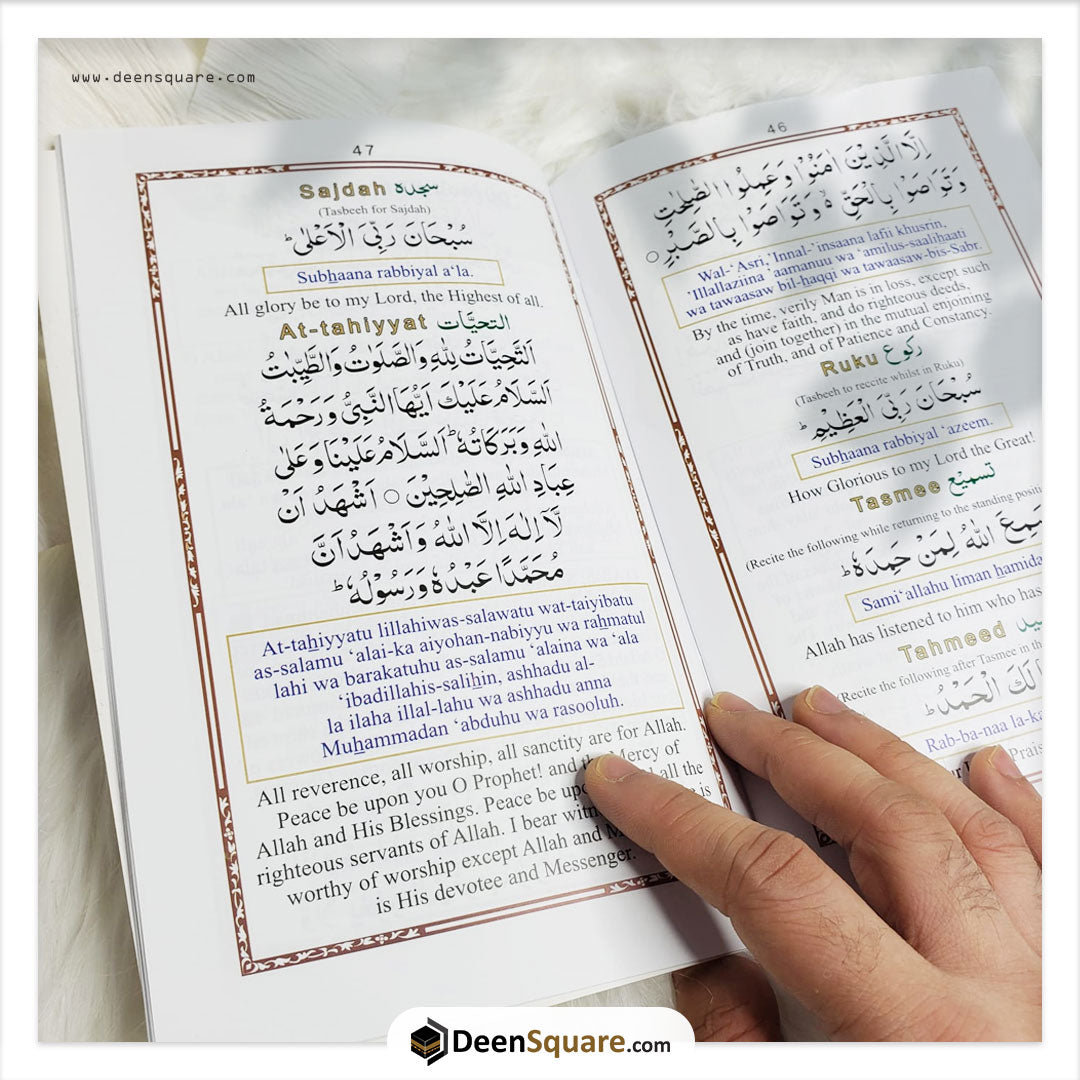 www.deensquare.com
47
Sajdah سجدہ
(Tasbeeh for Sajdah)
سُبْحَانَ رَبِّیَ الْاَعْلٰی ؕ
Subhaana rabbiyal a‘la.
All glory be to my Lord, the Highest of all.
At-tahiyyat التحیَّات
اَلتَّحِیَّاتُ لِلّٰهِ وَالصَّلَوٰتُ وَالطَّیِّبٰتُ
اَلسَّلَامُ عَلَیْكَ اَیُّهَا النَّبِیُّ وَرَحْمَةُ
اللّٰهِ وَبَرَكَاتُهٗ ؕ اَلسَّلَامُ عَلَیْنَا وَعَلٰی
عِبَادِ اللّٰهِ الصّٰلِحِیْنَ ○ اَشْهَدُ اَنْ
لَّاۤ اِلٰهَ اِلَّا اللّٰهُ وَاَشْهَدُ اَنَّ
مُحَمَّدًا عَبْدُهٗ وَرَسُوْلُهٗ ؕ
At-tahiyyatu lillahiwas-salawatu wat-taiyibatu
as-salamu ‘alai-ka aiyohan-nabiyyu wa rahmatul
lahi wa barakatuhu as-salamu ‘alaina wa ‘ala
‘ibadillahis-salihin, ashhadu al-
la ilaha illal-lahu wa ashhadu anna
Muhammadan ‘abduhu wa rasooluh.
All reverence, all worship, all sanctity are for Allah.
Peace be upon you O Prophet! and the Mercy of
Allah and His Blessings. Peace be all the
righteous servants of Allah. I bear is
worthy of worship except Allah and
is His devotee and Messenger.
46
اِلَّا الَّذِیْنَ اٰمَنُوْا وَعَمِلُوا الصّٰلِحٰتِ
وَتَوَاصَوْا بِالْحَقِّ ۙ وَتَوَاصَوْا بِالصَّبْرِ ○
Wal-‘Asri, ‘Innal-’insaana lafii khusrin,
‘Illallaziina ’aamanuu wa ‘amilus-saalihaati
wa tawaasaw bil-haqqi wa tawaasaw-bis-Sabr.
By the time, verily Man is in loss, except such
as have faith, and do righteous deeds,
and (join together) in the mutual enjoining
of Truth, and of Patience and Constancy.
Ruku رکوع
(Tasbeeh to reccite whilst in Ruku)
سُبْحَانَ رَبِّیَ الْعَظِیْمِ ؕ
Subhaana rabbiyal ‘azeem.
How Glorious to my Lord the Great!
Tasmee تسمیْع
(Recite the following while returning to the standing
سَمِعَ اللّٰهُ لِمَنْ حَمِدَهٗ ؕ
Sami‘allahu liman hamida
Allah has listened to him who has
Tahmeed
(Recite the following after Tasmee in the
لَكَ الْحَمْدُ ؕ
Rab-ba-naa la-ka
DeenSquare.com